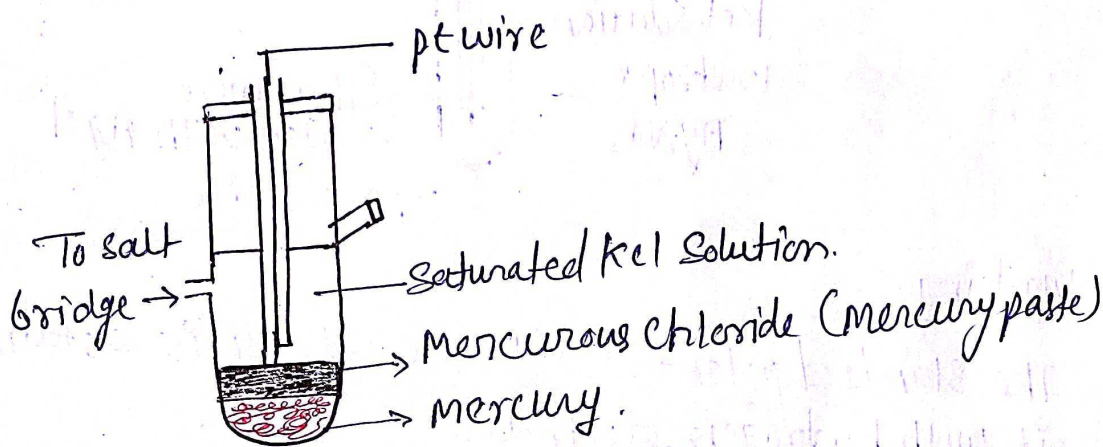 pt wire
To salt
bridge →
Saturated Kcl Solution.
Mercurous Chloride (Mercury paste)
Mercury.